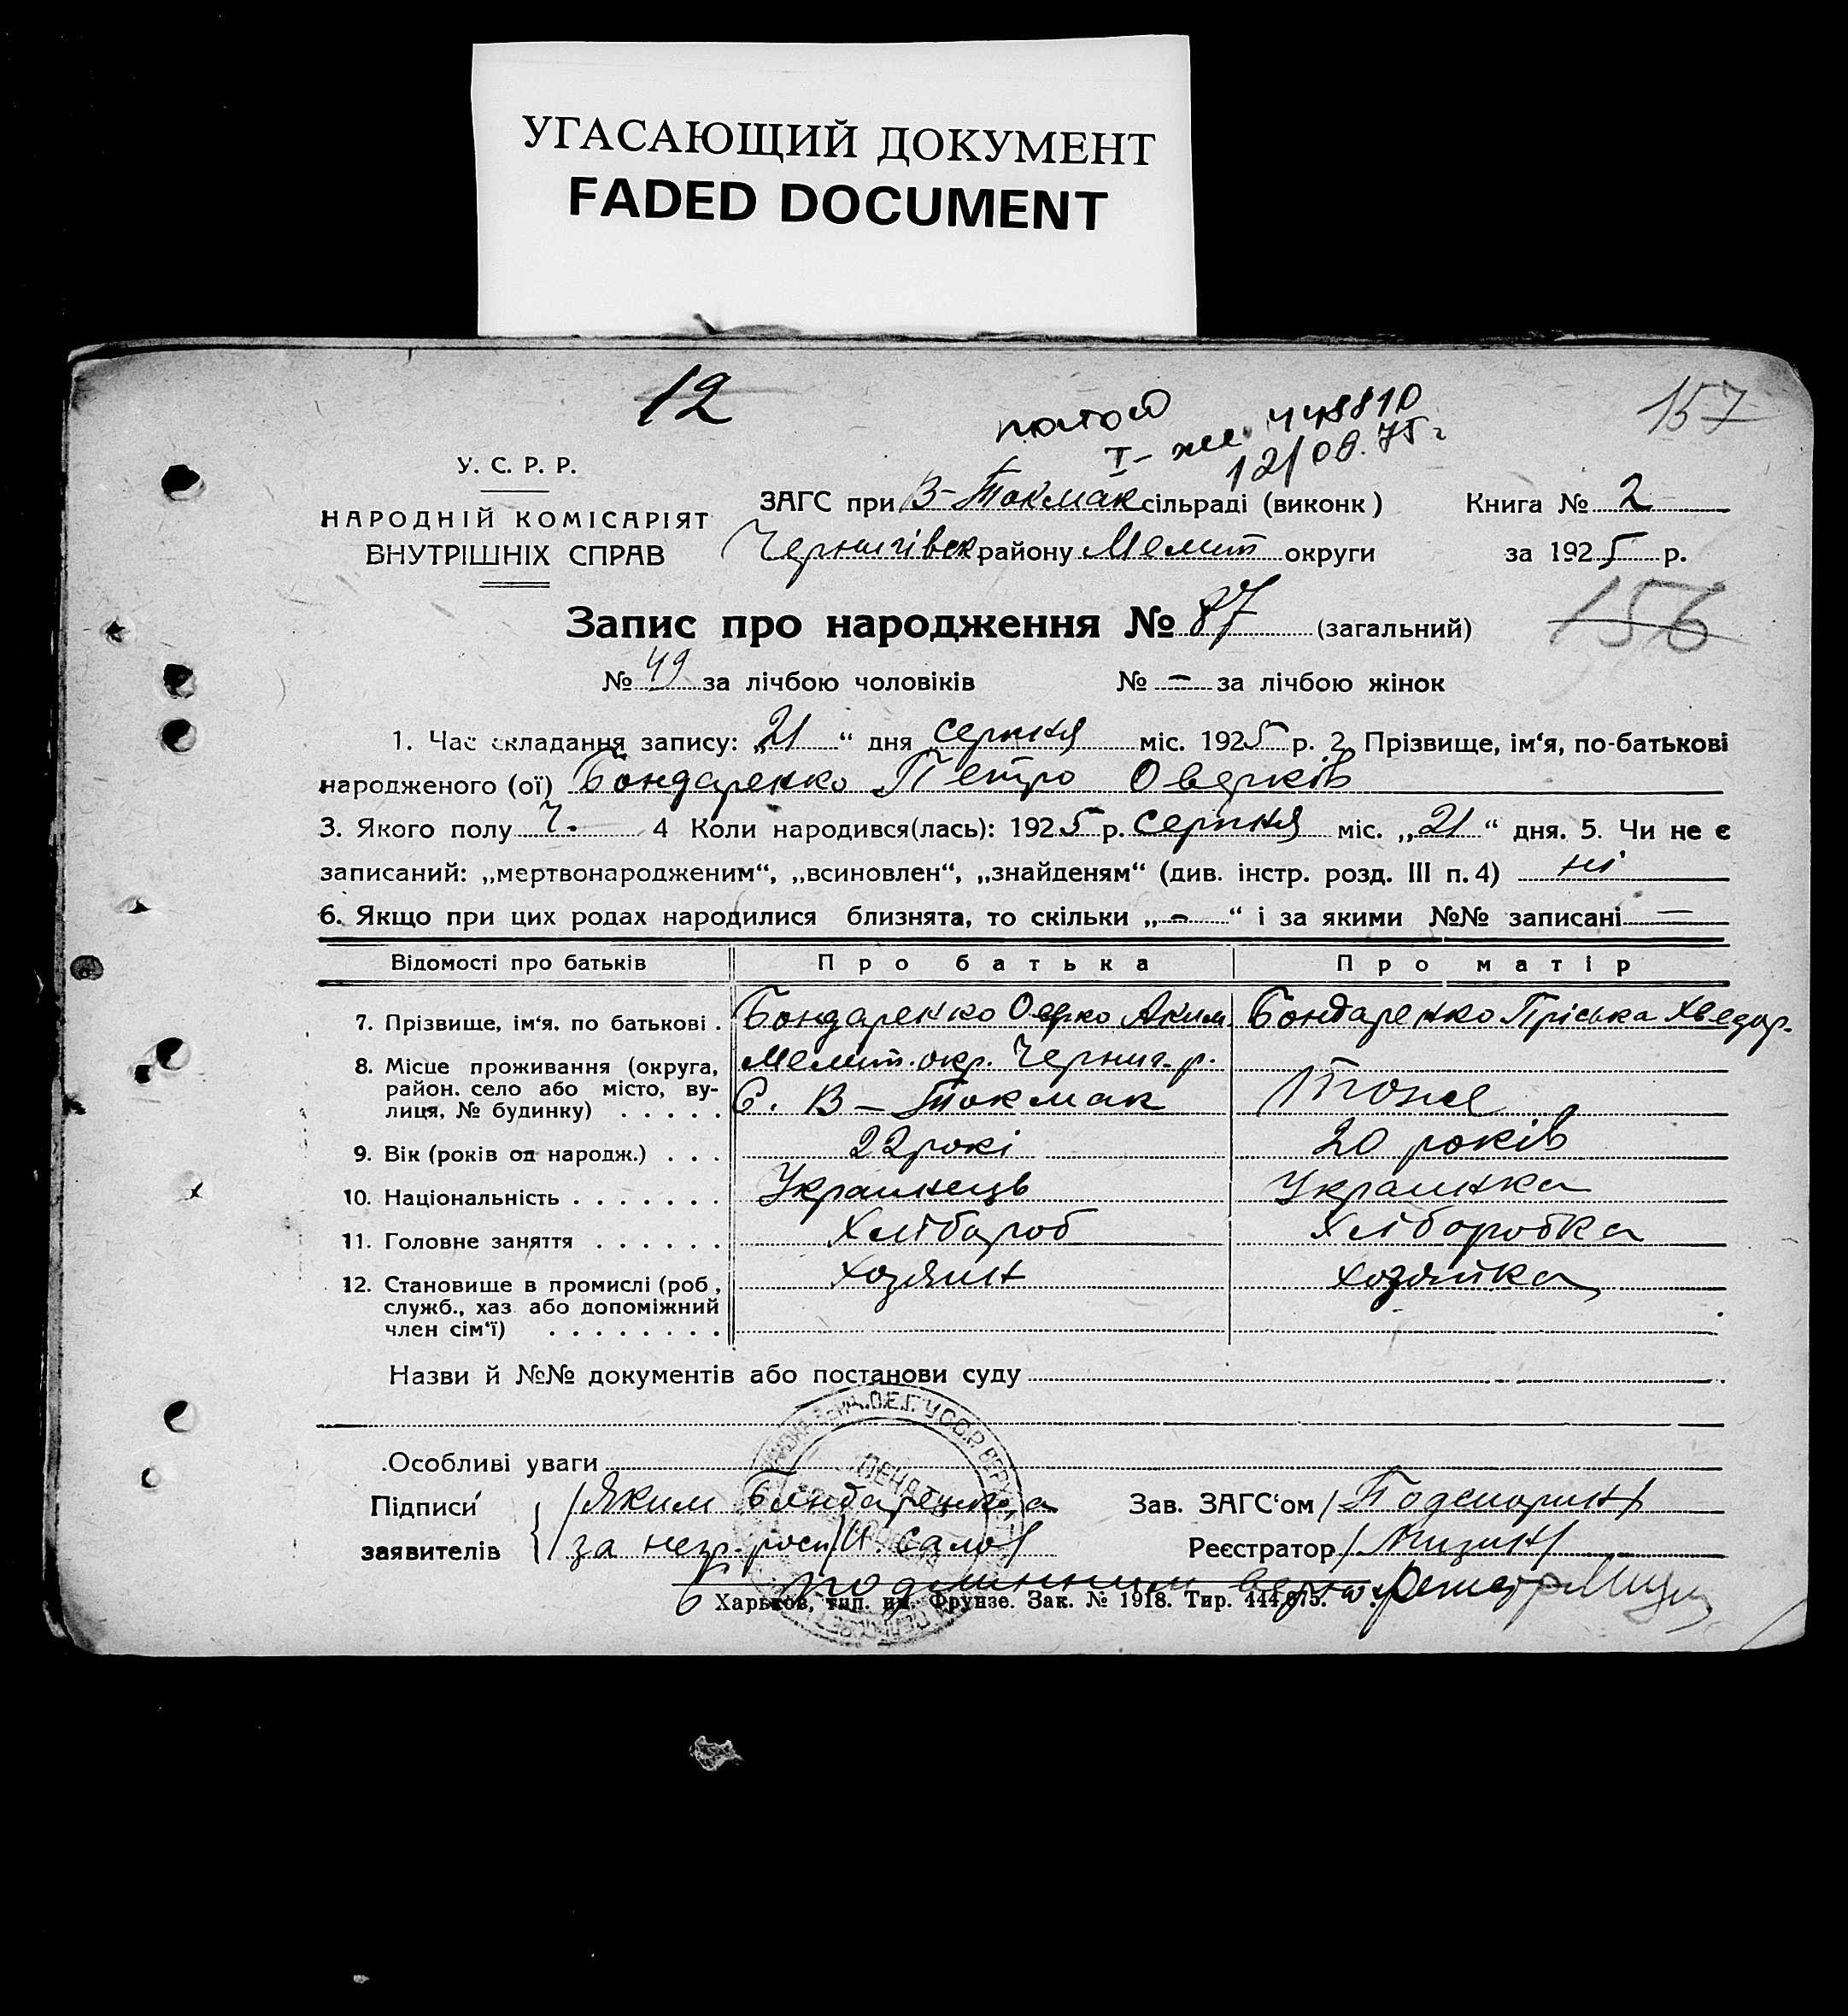 УГАСАЮЩИЙ ДОКУМЕНТ
FADED DOCUMENT
12
157
I- 448810
12/08.75г
У. С. Р. Р.
НАРОДНІЙ КОМІСАРІЯТ
ВНУТРІШНІХ СПРАВ
ЗАГС при В-Токмак сільраді (виконк) Книга № 2
Чернигівск району Мелит округи за 1925 р.
Запис про народження № 87 (загальний)
156
№ 49 за лічбою чоловіків № – за лічбою жінок
1. Час складання запису: „21“ дня серпня міс. 1925 р. 2. Прізвище, ім‘я, по-батькові
народженого (ої) Бондаренко Петро Оверків
3. Якого полу Ч. 4 Коли народився(лась): 1925 р. серпня міс. „21“ дня. 5. Чи не є
записаний: „мертвонародженим“, „всиновлен“, „знайденям“ (див. інстр. розд. III п. 4) ні
6. Якщо при цих родах народилися близнята, то скільки „–“ і за якими №№ записані —
Відомості про батьків Про батька Про матір
7. Прізвище, ім‘я. по батькові . Бондаренко Оверко Аким. Бондаренко Пріська Хведор.
8. Місце проживання (округа, Мелит. окр. Черниг. р.
район. село або місто, ву- С. В – Токмак Тоже
лиця, № будинку) . . . . .
9. Вік (років од народж.) . . . 22 рокі 20 років
10. Національність . . . . . . . Украинець Украинка
11. Головне заняття . . . . . . Хлібароб Хліборобка
12. Становище в промислі (роб, хозяин хозяйка
служб., хаз або допоміжний
член сім‘ї) . . . . . . . .
Назви й №№ документів або постанови суду
Особливі уваги
Підписи /Яким Бандаренко Зав. ЗАГС‘ом /
заявителів за негр. росп/ И. Салов/ Реєстратор /Мизин/
С подлинным верно
Харьков, тип. им. Фрунзе. Зак. № 1918. Тир. 444,675.